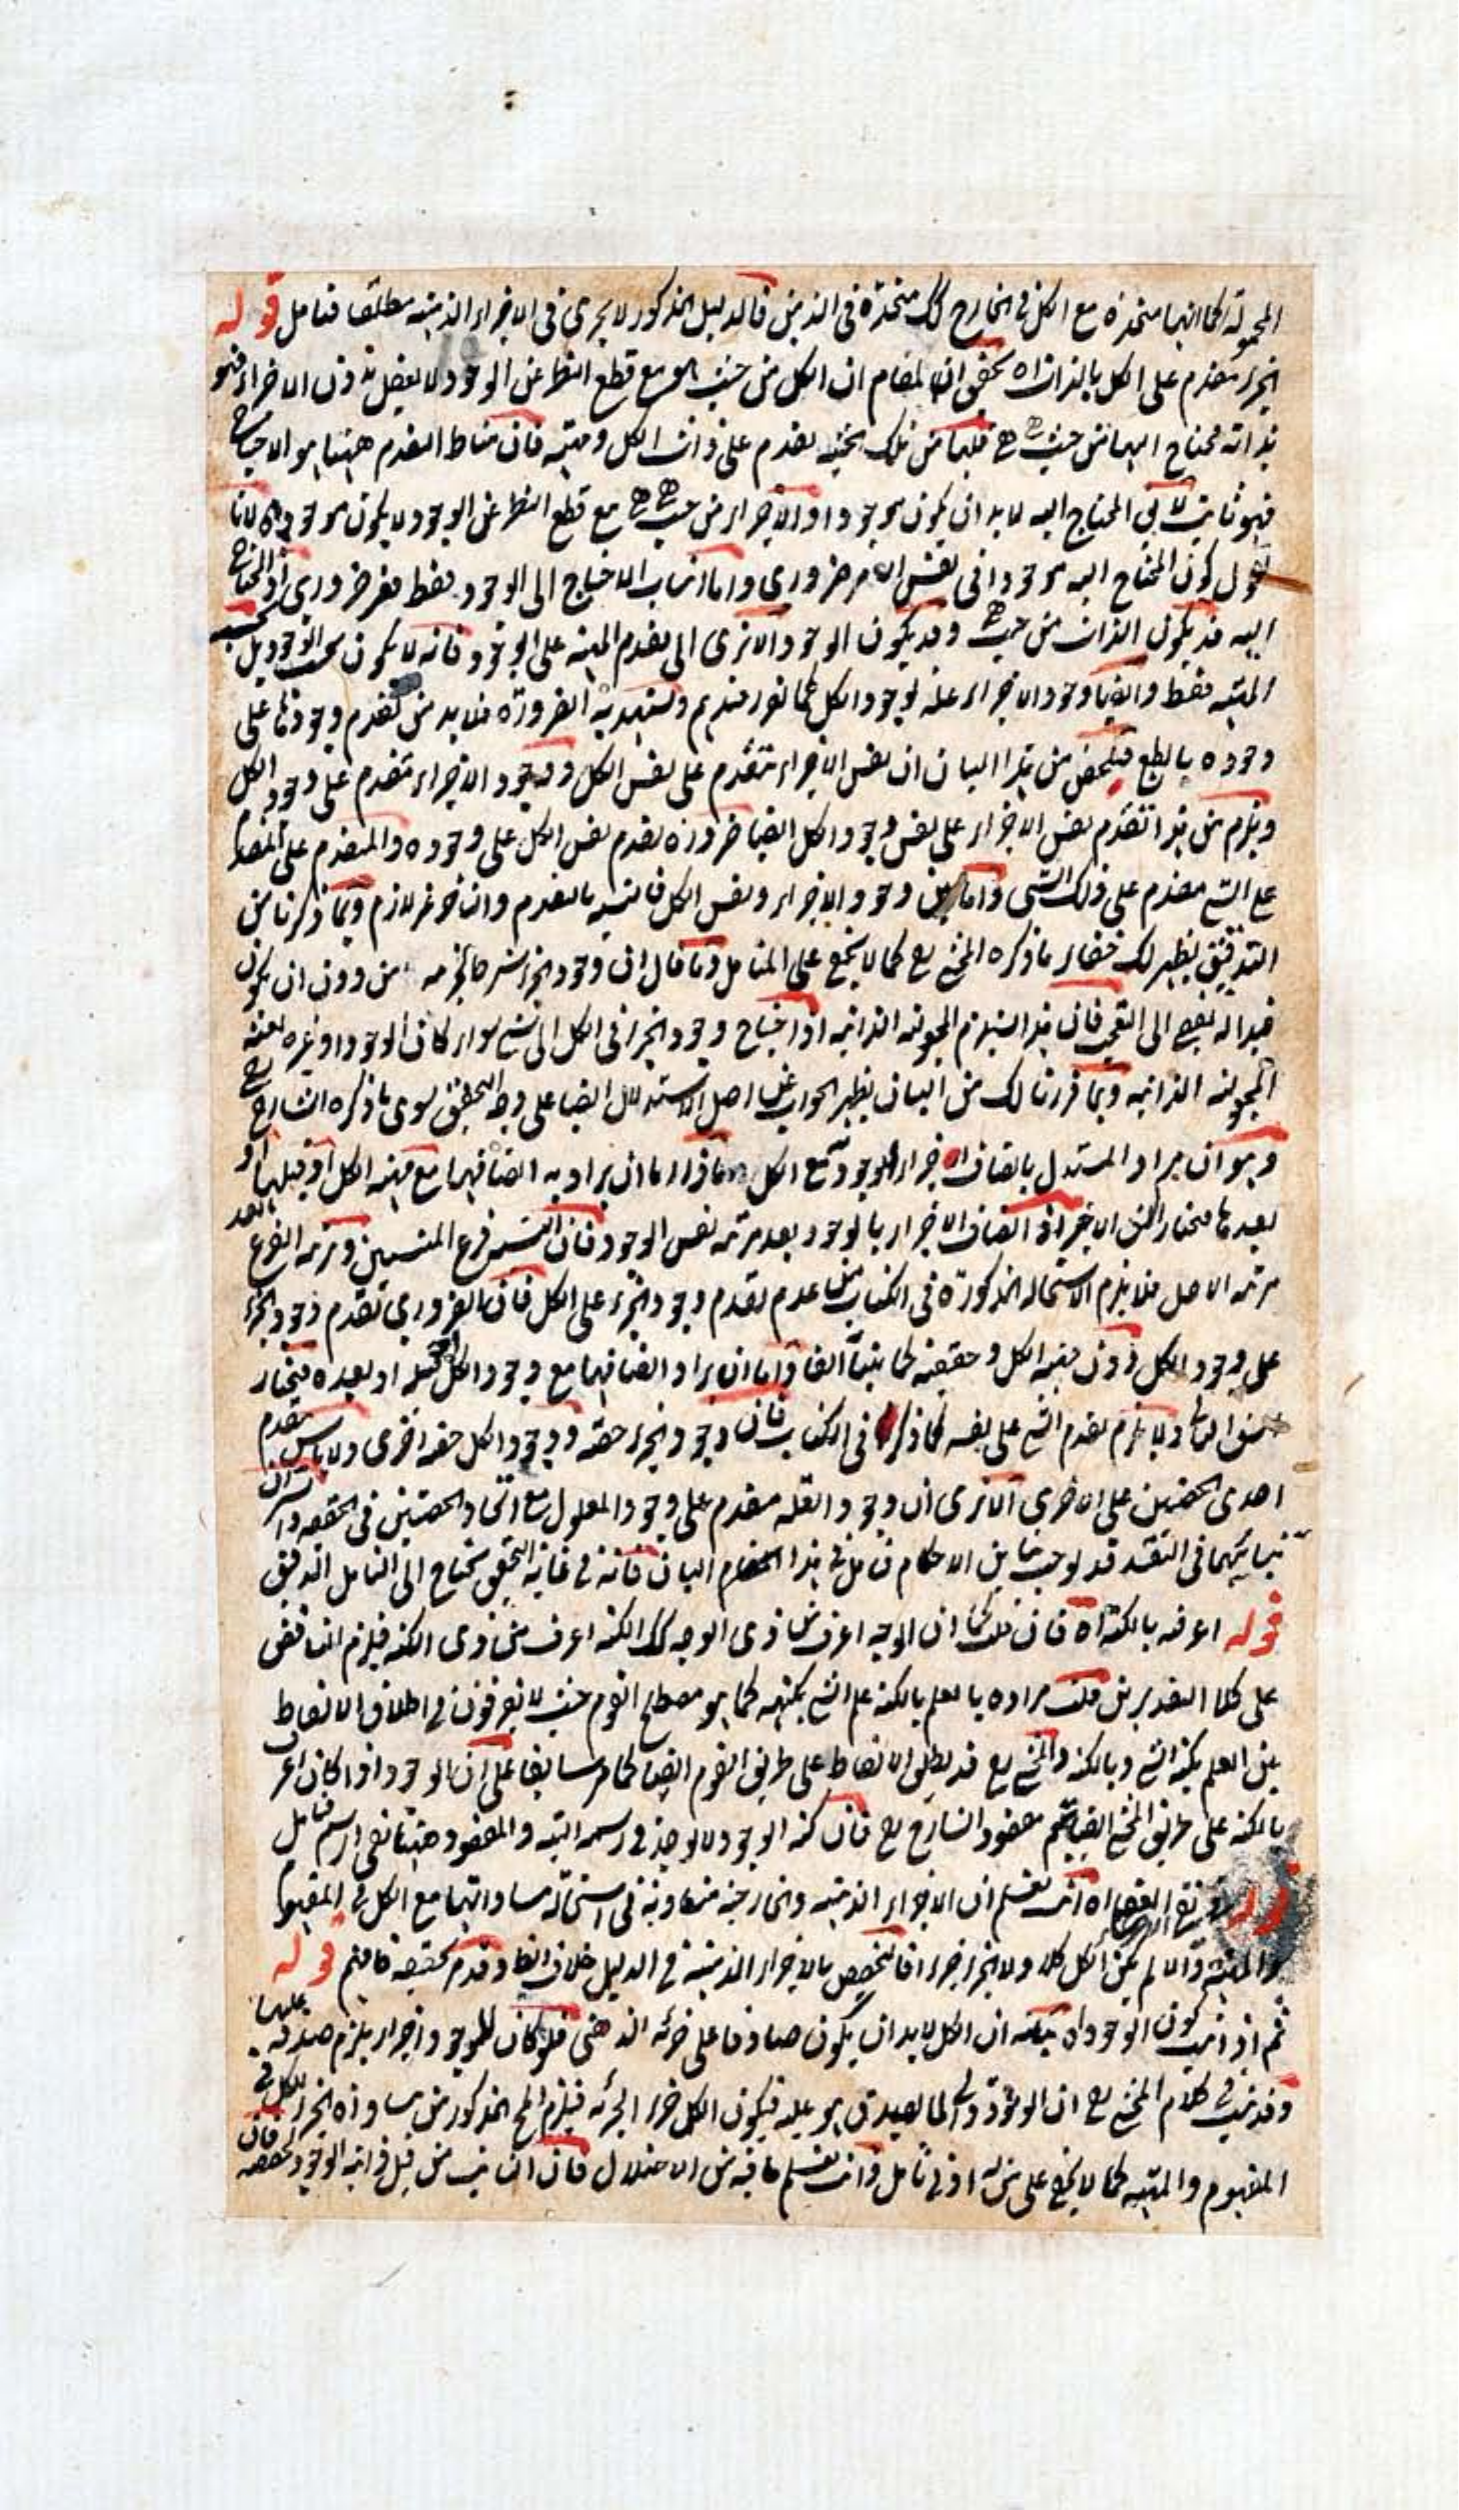 المحمولة كما انها متحدة مع الكل في الخارج كك متحدة في الذهن فالدليل المذكور لا يجري في الاجزاء الذهنية مطلقا فتامل قوله
الجزء مقدم على الكل بالذات اه تحقيق المقام ان الكل من حيث هو مع قطع النظر عن الوجود لا يعقل بدون الاجزاء فهو
بذاته محتاج اليها من حيث هي هي فلها من تلك الحيثية تقدم على ذات الكل ومهيته فان مناط التقدم ههنا هو الاحتياج
فهو ثابت المحتاج اليه لا بد ان يكون موجودا والاجزاء من حيث هي هي مع قطع النظر عن الوجود لا يكون موجودة لانا
نقول كون المحتاج اليه موجودا في نفس الامر ضروري واما انتساب الاحتياج الى الوجود فقط فغير ضروري اذ المحتاج
اليه قد يكون الذات من حيث هي وقد يكون الوجود الا ترى الى تقدم المهية على الوجود فانه لا يكون بحسب الوجود بل بحسب
المهية فقط وايضا وجود الاجزاء علة لوجود الكل كما تقرر عندهم وتشهد به الضرورة فلا بد من تقدم وجودها على
وجوده بالطبع فتلخص من هذا البيان ان نفس الاجزاء متقدم على نفس الكل ووجود الاجزاء متقدم على وجود الكل
ويلزم من هذا تقدم نفس الاجزاء على نفس وجود الكل ايضا ضرورة تقدم نفس الكل على وجوده والمتقدم على المتقدم
على الشيء مقدم على ذلك الشيء واما بين وجود الاجزاء ونفس الكل فالنسبة بالتقدم والتاخر غير لازم وبما ذكرنا من
التدقيق يظهر لك خفاء ما ذكره المحشي رح كما لا يخفى على المتامل وما قال ان وجود الجزء من دون ان يكون
يفضي الى التعجب فان هذا يستلزم المجعولية الذاتية اذا احتياج وجود الجزء في الكل الى شيء سواء كان الوجود او غيره يعني
المجعولية الذاتية وبما قررنا لك من البيان يظهر الجواب عن اصل الاستدلال ايضا على وجه التحقيق سوى ما ذكره الشارح رح
وهو ان مراد المستدل باتصاف الاجزاء بالوجود مع الكل اما ان يراد به اتصافها مع مهية الكل او قبلها او
بعدها فنختار الشق الاخير اذ اتصاف الاجزاء بالوجود بعد مرتبة نفس الوجود فان النسبة فرع المنتسبين ومرتبة الفرع بعد
مرتبة الاصل فلا يلزم الاستحالة المذكورة في الكتاب من عدم تقدم وجود الجزء على الكل فان الضروري تقدم وجود الجزء
على وجود الكل دون مهية الكل وحقيقته كما بينا آنفا واما ان يراد اتصافها مع وجود الكل او قبله او بعده فنختار
ولا يلزم تقدم الشيء على نفسه كما ذكر في الكتاب فان وجود الجزء حصة ووجود الكل حصة اخرى ولا باس بتقدم
احدى الحصتين على الاخرى الا ترى ان وجود العلة مقدم على وجود المعلول مع اتحاد الحصتين في الحقيقة
قد يوجب تباين الاحكام فتامل في هذا المقام البيان فانه في غاية التحقيق يحتاج الى التامل الدقيق
قوله اعرف بالكنه اه فان قلت كما ان الوجه اعرف من ذي الوجه كك الكنه اعرف من ذي الكنه فيلزم التناقض
على كلا التقديرين قلت مراده بالعلم بالكنه علم الشيء بكنهه كما هو مصطلح القوم حيث لا يفرقون في اطلاق الالفاظ
بين العلم بكنه الشيء وبالكنه والمحشي رح قد يطلق الالفاظ على طريق القوم ايضا كما مر سابقا على ان الوجود اذا كان اعرف
بالكنه على طريق المحشي ايضا يتم مقصود الشارح رح فان كنه الوجود لا يوخذ في رسمه البتة والمقصود ههنا نفي الرسم فتامل
اه انت تعلم ان الاجزاء الذهنية والخارجية متساوية في استحالة مساواتها مع الكل في المفهوم
والمهية والا لم يكن الكل كلا ولا الجزء جزءا فالتخصيص بالاجزاء الذهنية في الدليل خلاف الواقع وقد مر تحقيقه فافهم قوله
ثم اذا ثبت كون الوجود اه بيانه ان الكل لا بد ان يكون صادقا على جزئه الذهني فلو كان للوجود اجزاء يلزم صدقه عليها
وقد ثبت في كلام المحشي رح ان الوجود ذاتي لما يصدق هو عليه فيكون الكل جزء الجزئه فيلزم المحال المذكور من مساواة الجزء للكل في
المفهوم والمهية كما لا يخفى على من له ادنى تامل وانت تعلم ما فيه من الاختلال فان الثابت من قبل ذاتية الوجود لحصصه فان